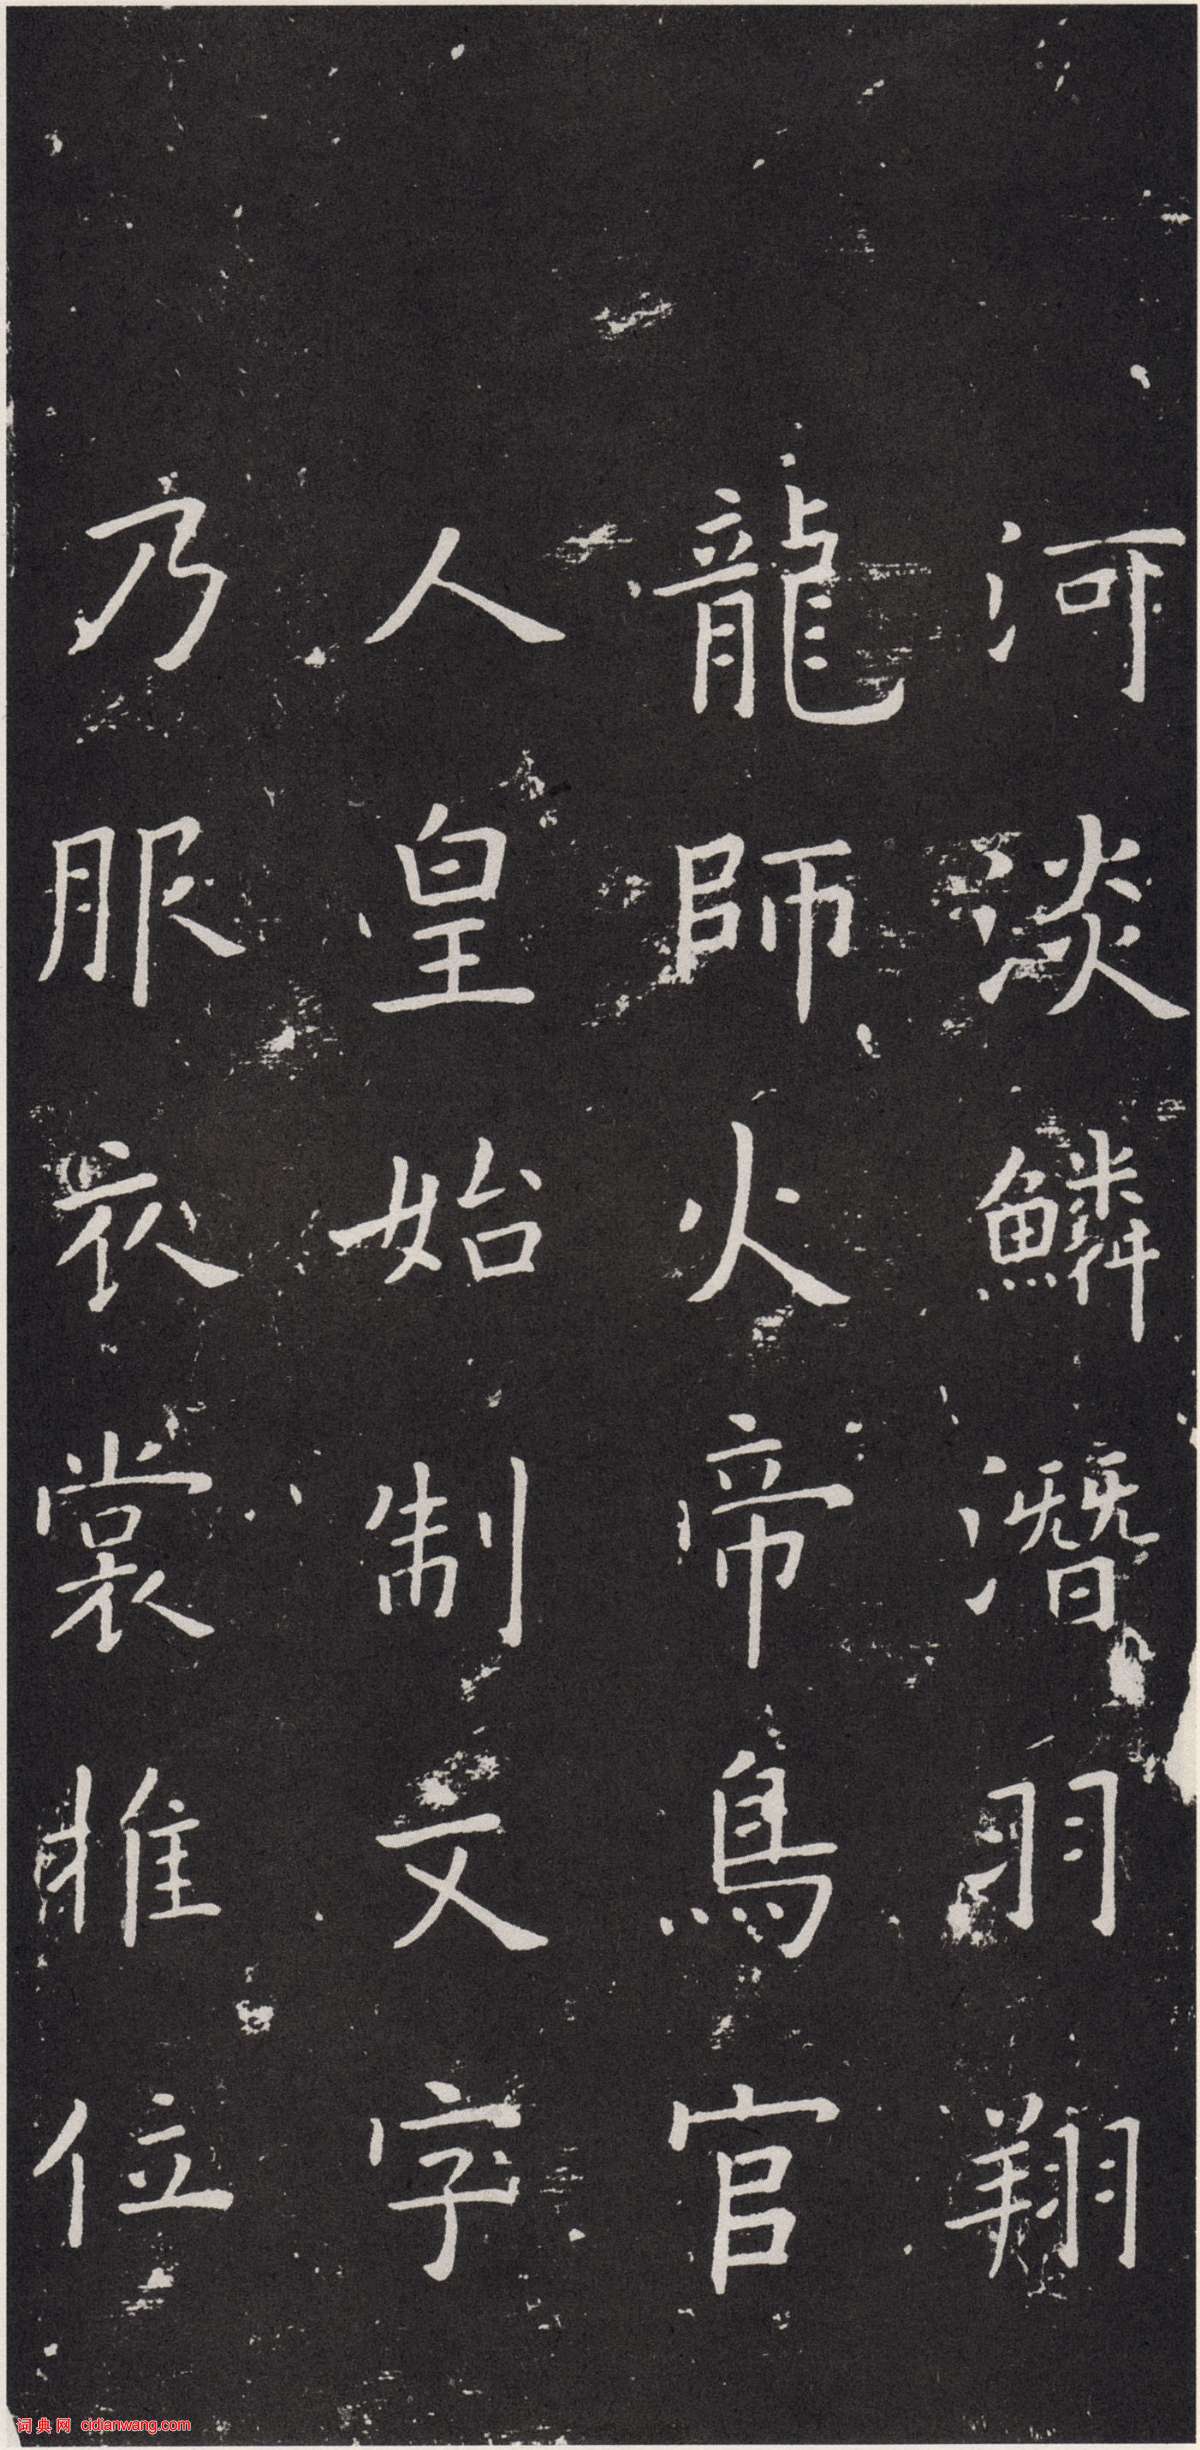 河淡鱗潛羽翔
龍師火帝鳥官
人皇始制文字
乃服衣裳推位
词典网 cidianwang.com